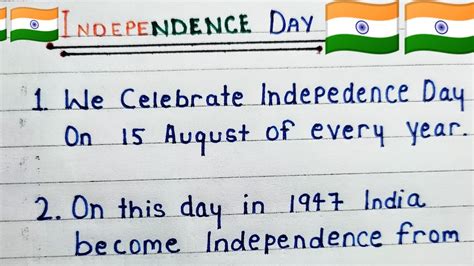 INDEPENDENCE DAY
1. We Celebrate Indepedence Day
On 15 August of every year.
2. On this day in 1947 India
become Independence from